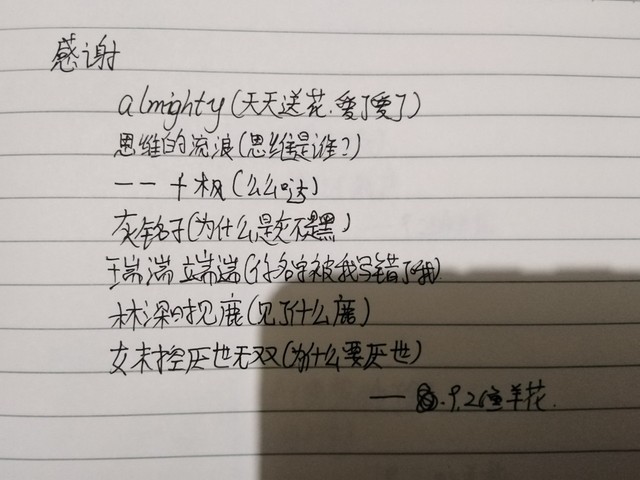 感谢
almighty(天天送花.爱了爱了)
思维的流浪(思维是谁?)
一一十枫(么么哒)
灰铭子(为什么是灰不是黑)
瑞湍端遄(你名字被我写错了哦)
林深时见鹿(见了什么鹿)
女末控厌世无双(为什么要厌世)
—. 9.26 羊花.